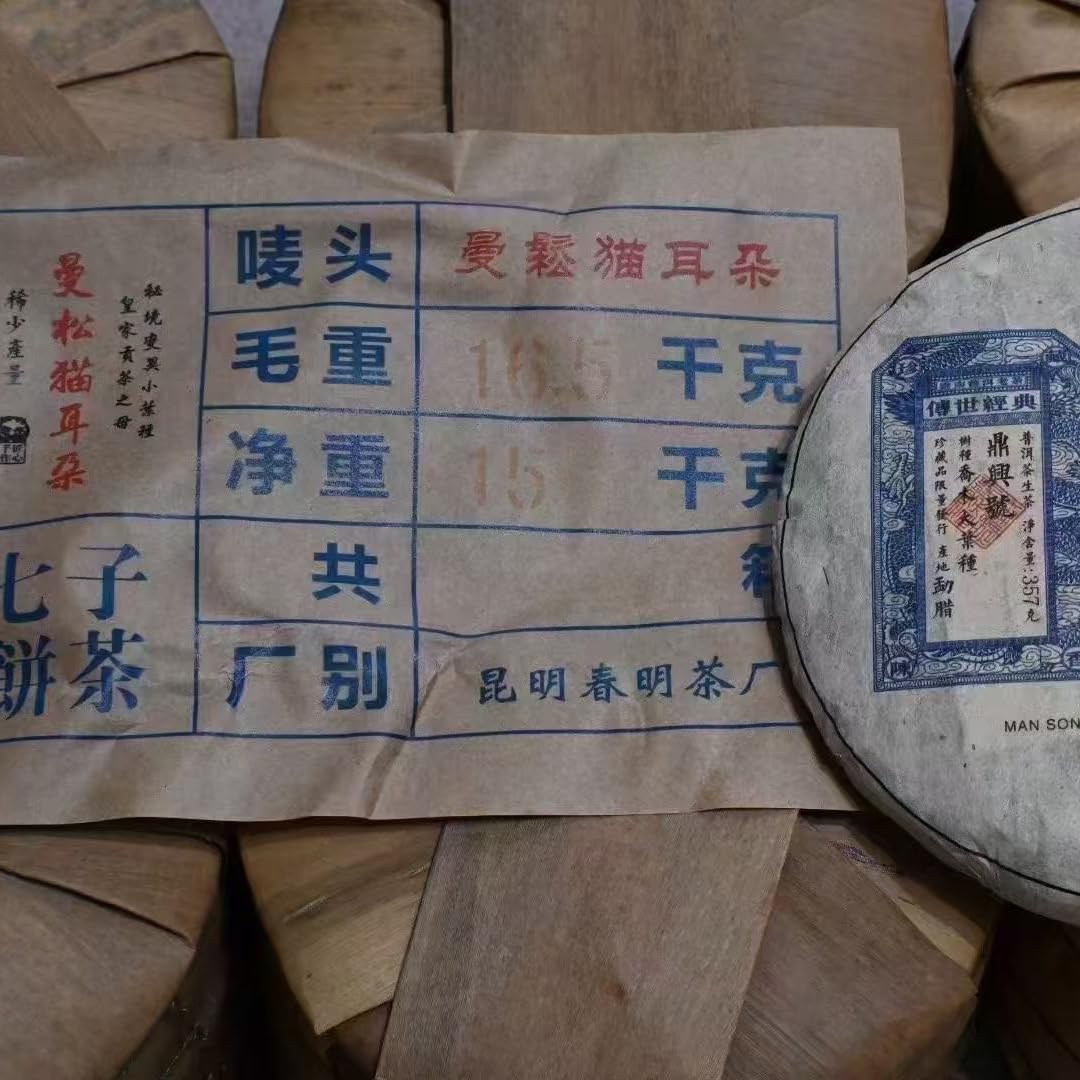 秘境变异小葉種
皇家贡茶之母
曼松猫耳朵
稀少產量
七子
餅茶
唛头
曼鬆猫耳朵
毛重
16.5 千克
净重
15 千克
共
厂别
昆明春明茶厂
傳世經典
普洱茶生茶 淨含量:357克
鼎興號
樹種喬木大葉種
珍藏品限量發行 產地勐腊
MAN SON